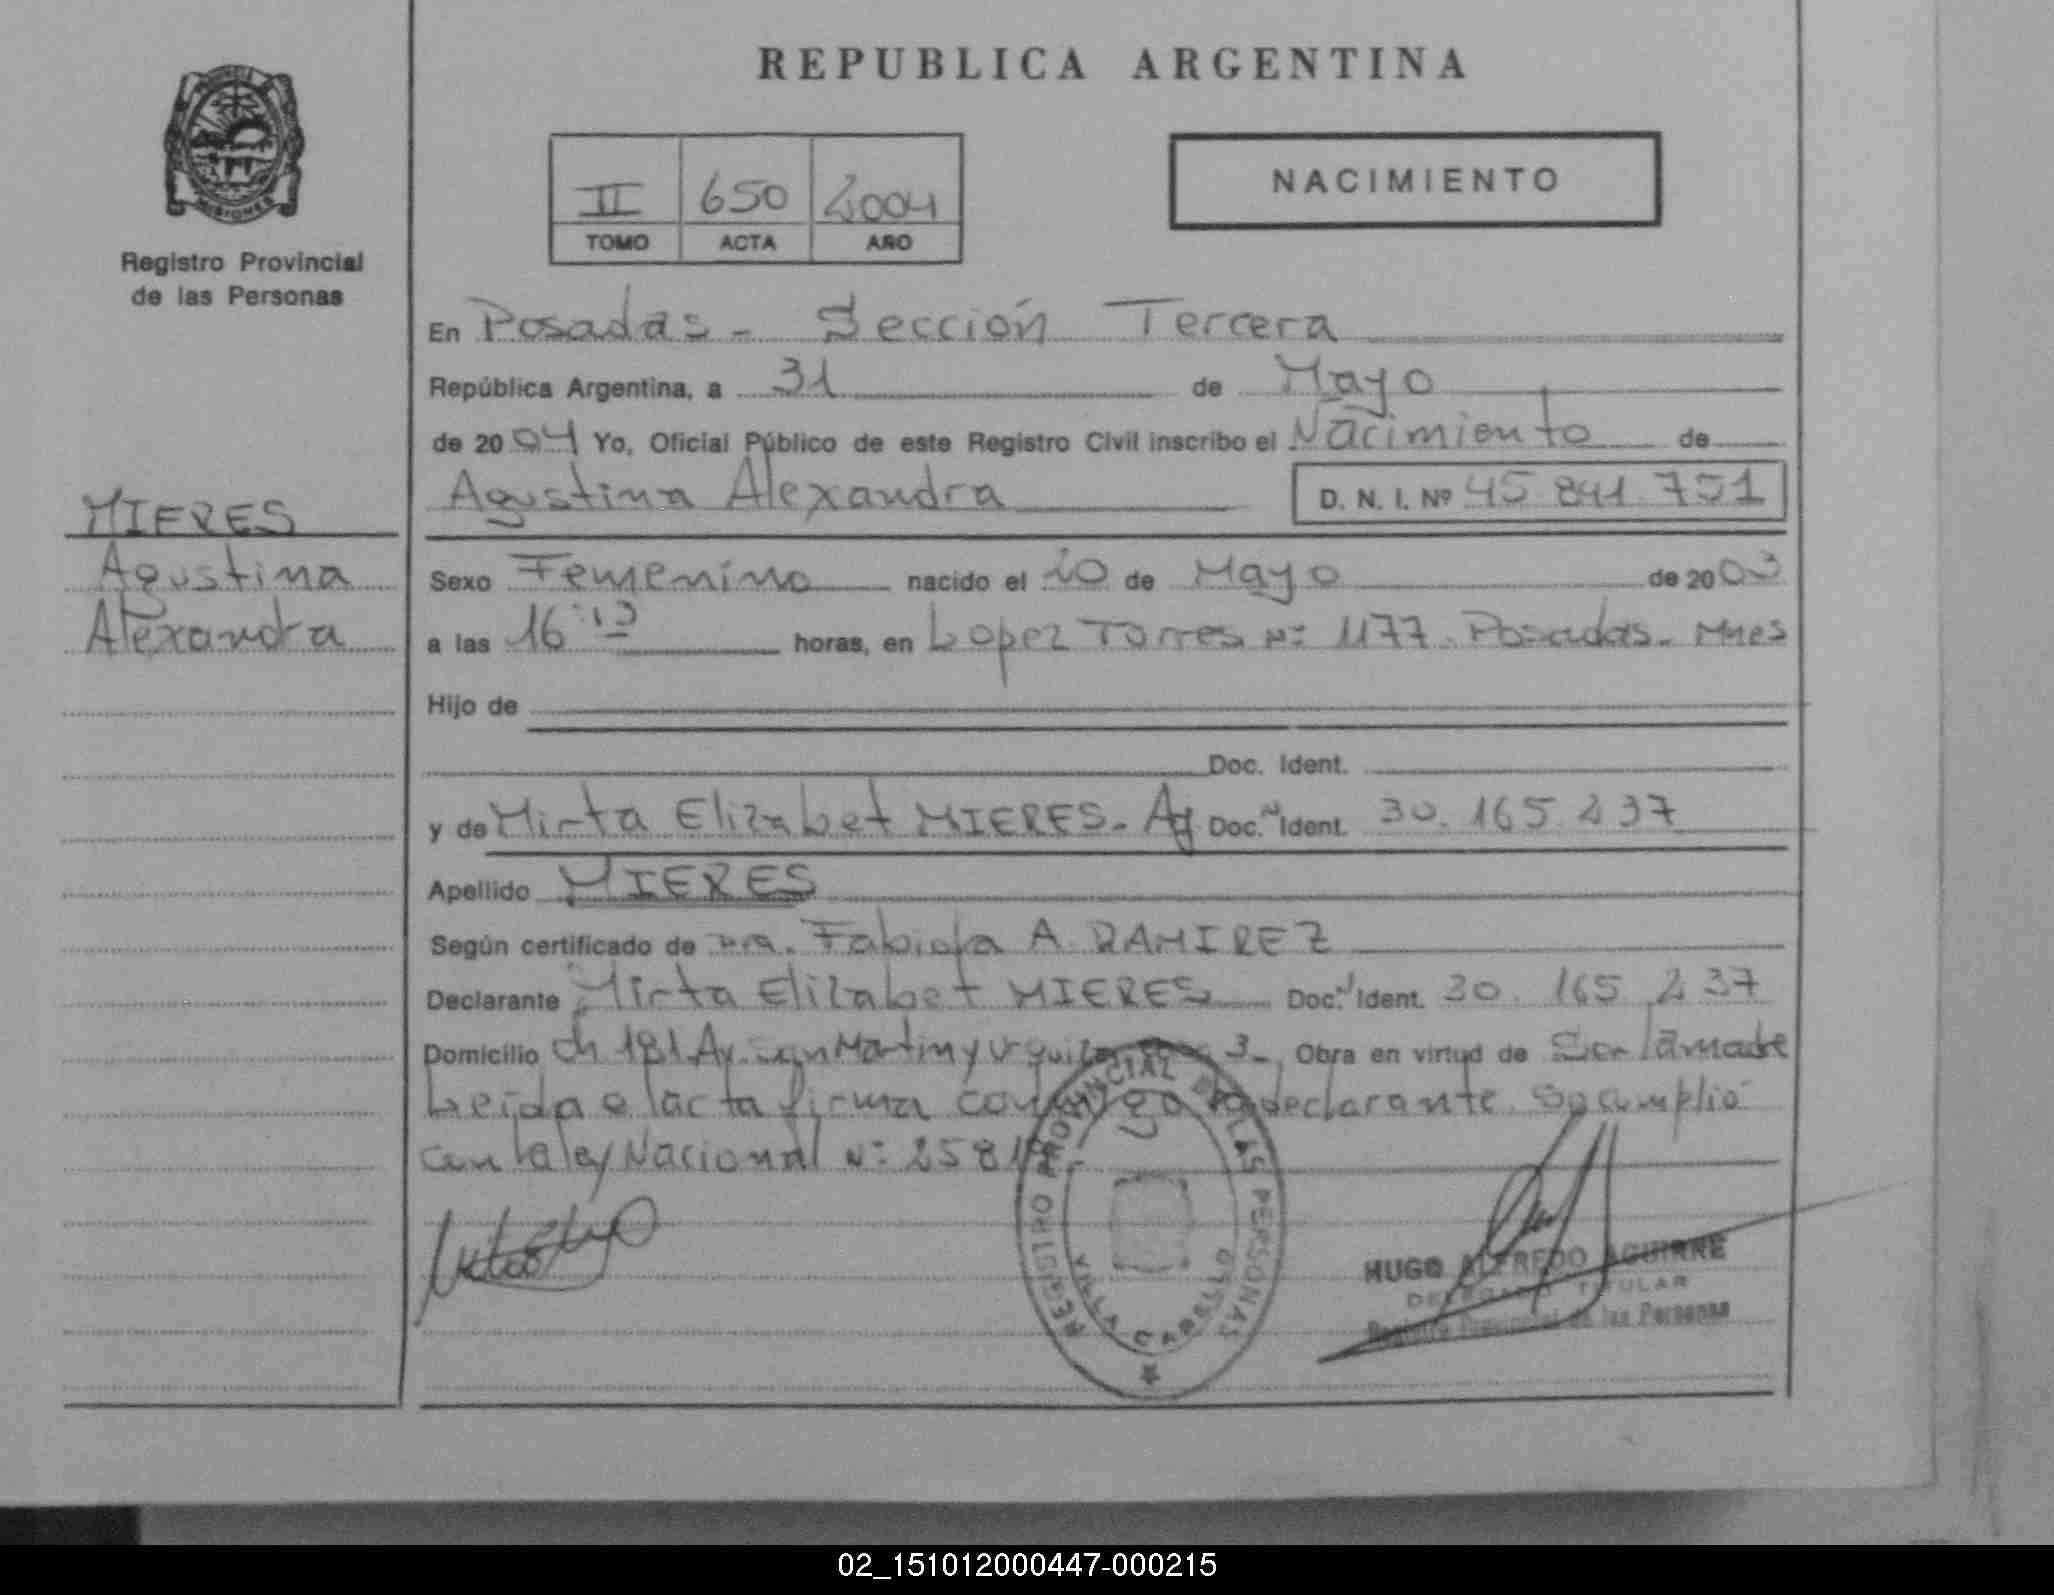 REPUBLICA ARGENTINA
MISIONES
Registro Provincial
de las Personas
II 650 2004
TOMO ACTA AÑO
NACIMIENTO
En Posadas - Sección Tercera
República Argentina, a 31 de Mayo
de 2004 Yo, Oficial Público de este Registro Civil inscribo el Nacimiento de
Agustina Alexandra D. N. I. Nº 45.841.751
MIERES
Agustina
Alexandra
Sexo Femenino nacido el 20 de Mayo de 2003
a las 16:15 horas, en Lopez Torres Nº 1177. Posadas. Mnes
Hijo de
Doc. Ident.
y de Mirta Elizabet MIERES. Arg. Doc. N Ident. 30.165.237
Apellido MIERES
Según certificado de Dra. Fabiola A. RAMIREZ
Declarante Mirta Elizabet MIERES Doc. N Ident. 30.165.237
Domicilio Ch 181 Av. San Martin y Urquiza 3 - Obra en virtud de Ser la madre
Leida el acta firma conmigo la declarante. Se cumplió
con la ley Nacional Nº 2581
REGISTRO PROVINCIAL DE LAS PERSONAS
VILLA CABELLO
HUGO ALFREDO AGUIRRE
DELEGADO TITULAR
Registro Provincial de las Personas
02_151012000447-000215